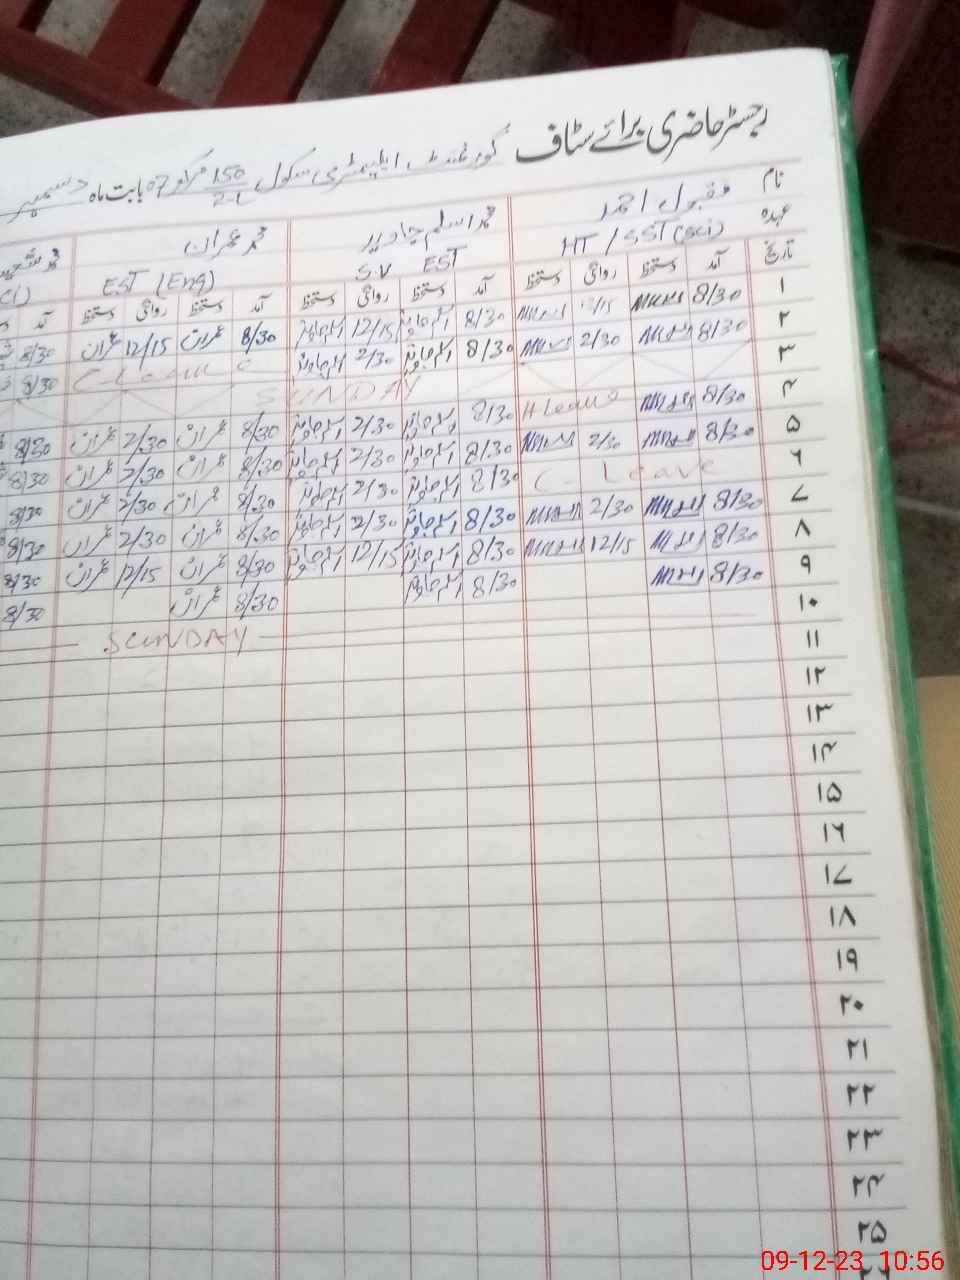 رجسٹر حاضری برائے سٹاف گورنمنٹ ایلیمنٹری سکول 150/2-L مرکز 07 بابت ماہ دسمبر
نام مقبول احمد محمد اسلم جاوید محمد عمران محمد شعیب
عہدہ HT / SST (Sci) S.V EST EST (Eng)
تاریخ آمد دستخط روانگی دستخط آمد دستخط روانگی دستخط آمد دستخط روانگی دستخط آمد
۱ 8/30 12/15 8/30 اسلم جاوید 12/15 اسلم جاوید 8/30 عمران 12/15 عمران 8/30
۲ 8/30 2/30 8/30 اسلم جاوید 2/30 اسلم جاوید C-Leave 8/30
۳ SUNDAY
۴ 8/30 Leave 8/30 اسلم جاوید 2/30 اسلم جاوید 8/30 عمران 2/30 عمران 8/30
۵ 8/30 2/30 8/30 اسلم جاوید 2/30 اسلم جاوید 8/30 عمران 2/30 عمران 8/30
۶ C-Leave 8/30 اسلم جاوید 2/30 اسلم جاوید 8/30 عمران 2/30 عمران 8/30
۷ 8/30 2/30 8/30 اسلم جاوید 2/30 اسلم جاوید 8/30 عمران 2/30 عمران 8/30
۸ 8/30 12/15 8/30 اسلم جاوید 12/15 اسلم جاوید 8/30 عمران 12/15 عمران 8/30
۹ 8/30 8/30 اسلم جاوید 8/30 عمران 8/30
۱۰ SUNDAY
۱۱
۱۲
۱۳
۱۴
۱۵
۱۶
۱۷
۱۸
۱۹
۲۰
۲۱
۲۲
۲۳
۲۴
۲۵
09-12-23 10:56